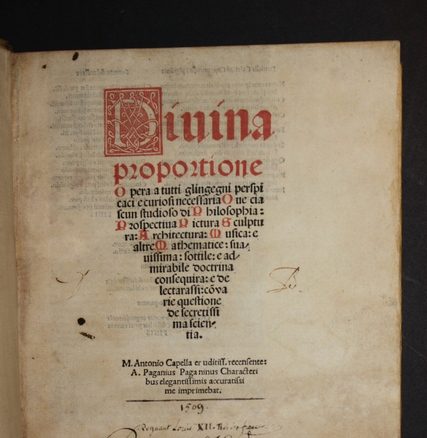 Diuina
proportione
Opera a tutti glingegni perspi
caci e curiosi necessaria Oue cia
scun studioso di Philosophia:
Prospectiua Pictura Sculptu
ra: Architectura: Musica: e
altre Mathematice: sua
uissima: sottile: e ad
mirabile doctrina
consequira: e de
lectarassi: cõ va
rie questione
de secretissi
ma scien
tia.
M. Antonio Capella eruditiss. recensente:
A. Paganius Paganinus Characteri
bus elegantissimis accuratissi
me imprimebat.
1509.
XII.